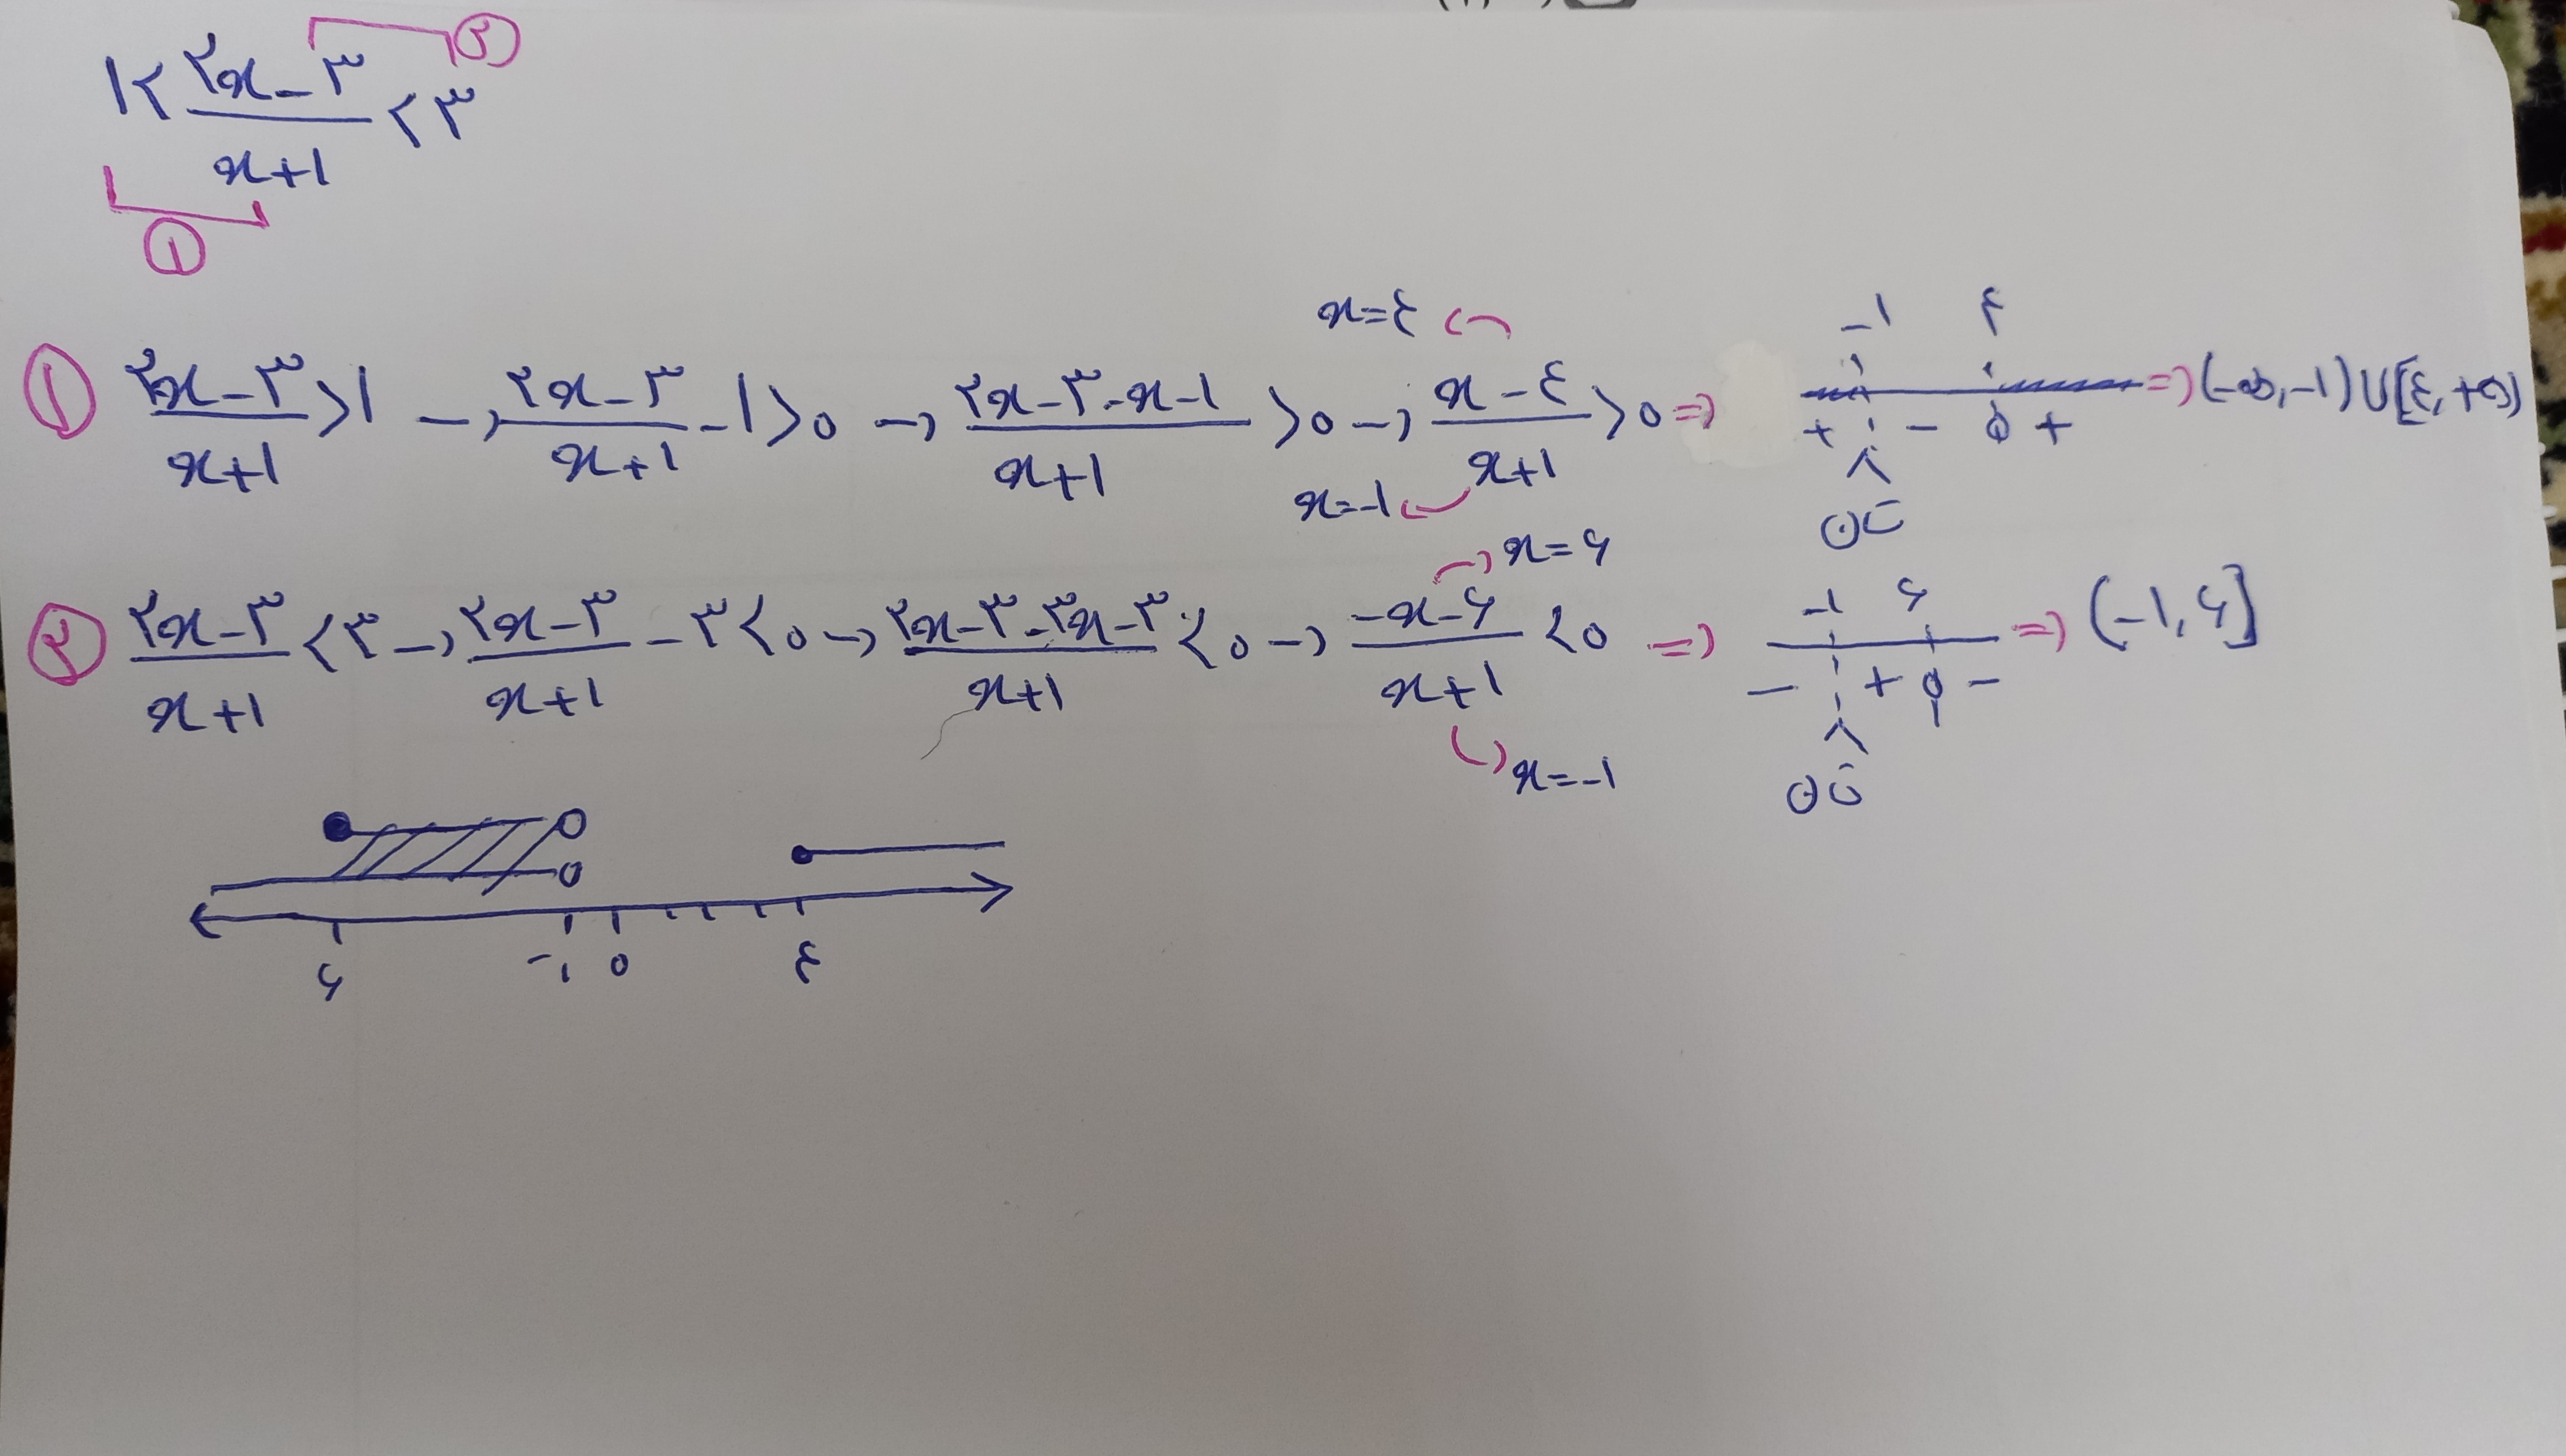 ۱ < (۲x - ۳)/(x+۱) < ۳
②
①
① (۲x-۳)/(x+۱) > ۱ → (۲x-۳)/(x+۱) - ۱ > ۰ → (۲x-۳-x-۱)/(x+۱) > ۰ → (x-۴)/(x+۱) > ۰ ⇒ (-∞, -۱) ∪ [۴, +∞)
x=۴
x=-۱
-۱ ۴
+ - ۰ +
تن
② (۲x-۳)/(x+۱) < ۳ → (۲x-۳)/(x+۱) - ۳ < ۰ → (۲x-۳-۳x-۳)/(x+۱) < ۰ → (-x-۶)/(x+۱) < ۰ ⇒ (-۱, ۶]
x=۶
x=-۱
-۱ ۶
- + ۰ -
تن
۶ -۱ ۰ ۴